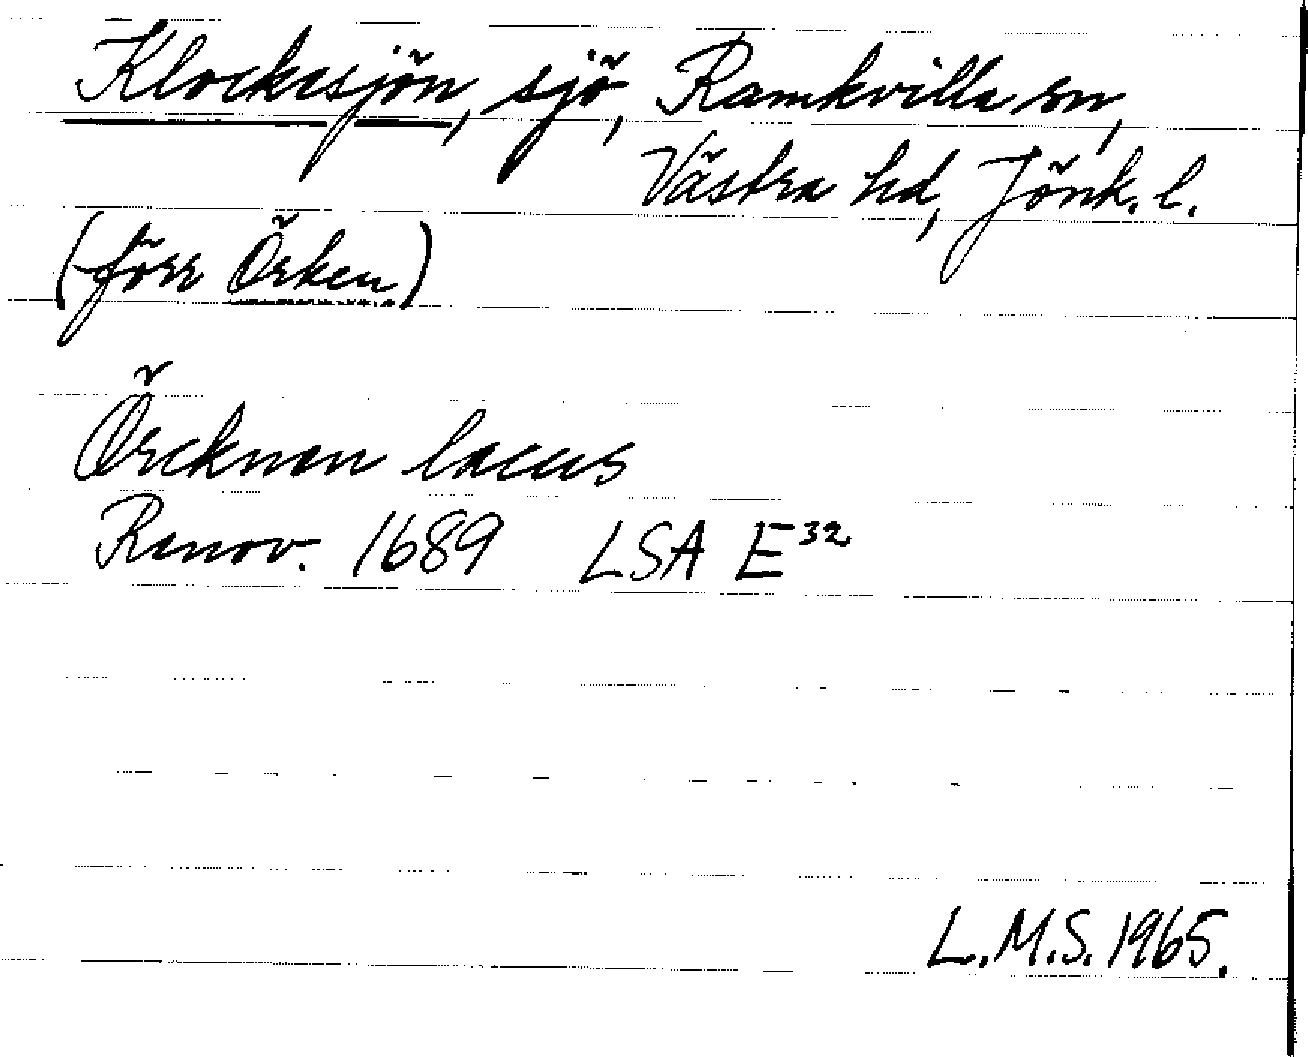 Klockesjön, sjö, Ramkvilla sn,
Västra hd, Jönk. l.
(förr Örken)
Örcknen lacus
Renov. 1689 LSA E32
L.M.S. 1965.